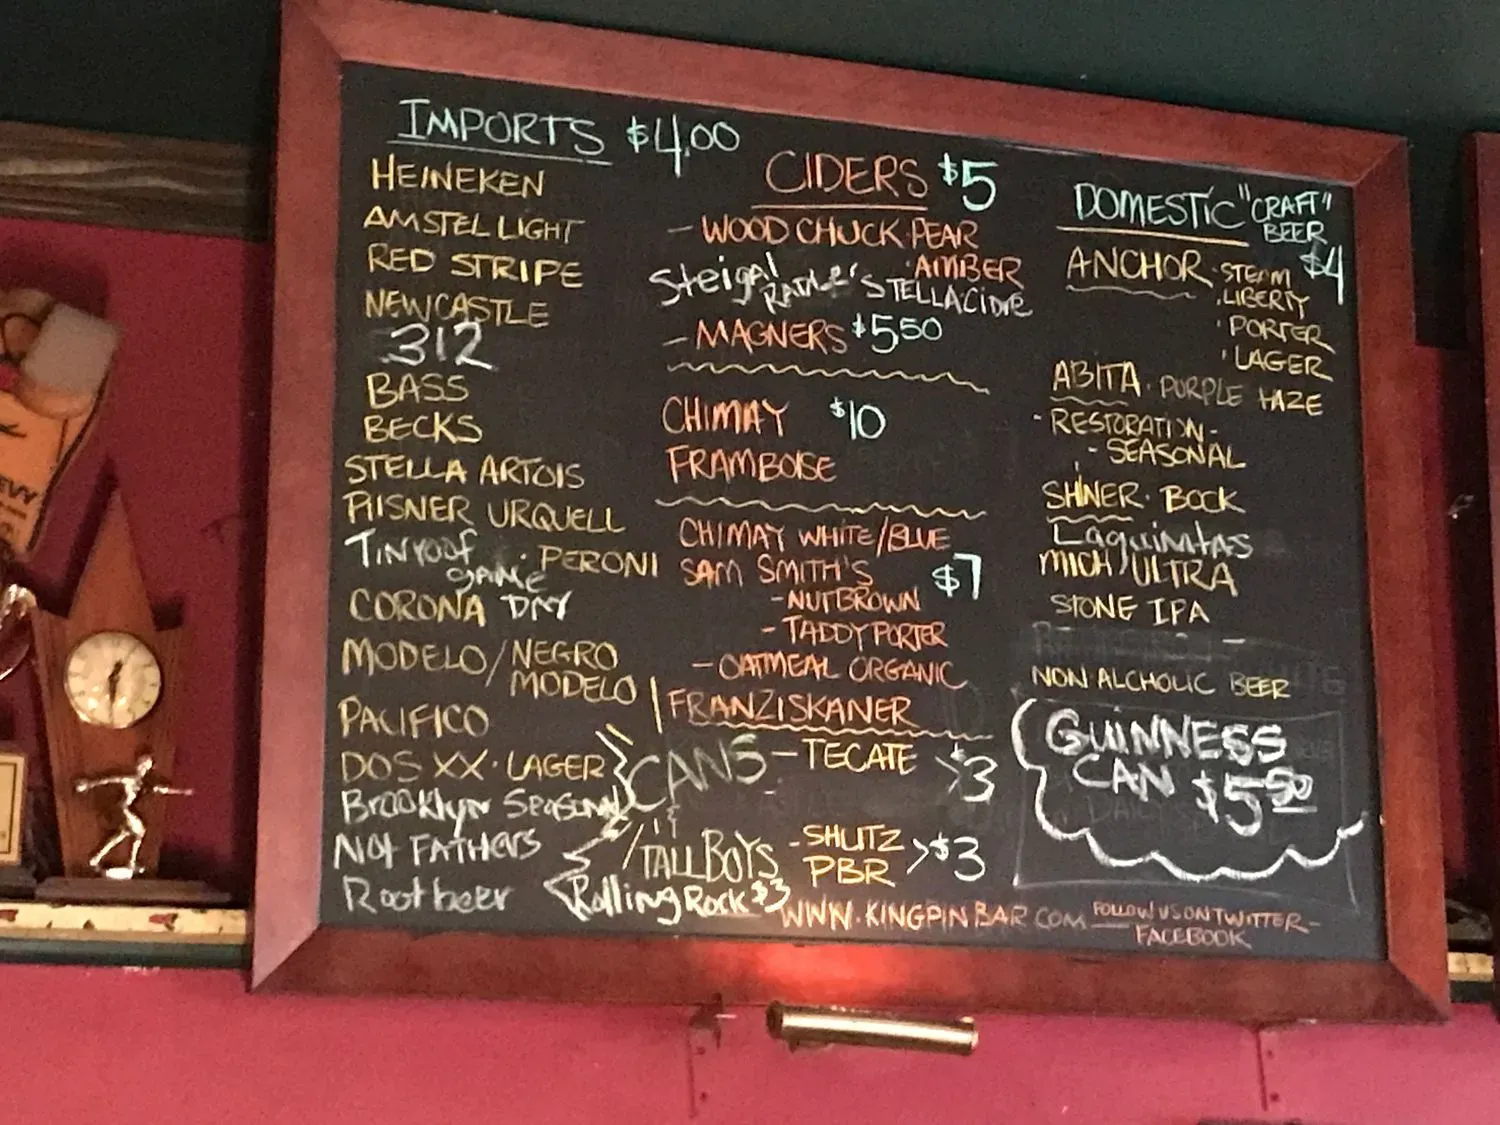 IMPORTS $4.00
HEINEKEN
AMSTEL LIGHT
RED STRIPE
NEWCASTLE
312
BASS
BECKS
STELLA ARTOIS
PILSNER URQUELL
TINROOF · PERONI
GAME
CORONA DAY
MODELO/NEGRO
MODELO
PACIFICO
DOS XX · LAGER
Brooklyn Seasonal
Not FATHERS
Root beer
CIDERS $5
- WOOD CHUCK · PEAR
· AMBER
Steigal
STELLA Cidre
- MAGNERS $5.50
CHIMAY $10
FRAMBOISE
CHIMAY WHITE/BLUE
SAM SMITH'S $7
- NUTBROWN
- TADDY PORTER
- OATMEAL ORGANIC
FRANZISKANER
CANS - TECATE >$3
TALL BOYS - SHLITZ
PBR >$3
Rolling Rock $3
WWW.KINGPINBAR.COM
FOLLOW US ON TWITTER -
FACEBOOK
DOMESTIC "CRAFT"
BEER
$4
ANCHOR · STEAM
· LIBERTY
· PORTER
· LAGER
ABITA · PURPLE HAZE
- RESTORATION -
- SEASONAL
SHINER · BOCK
Laquinitas
MICH/ULTRA
STONE IPA
NON ALCHOLIC BEER
GUINNESS
CAN $5.50